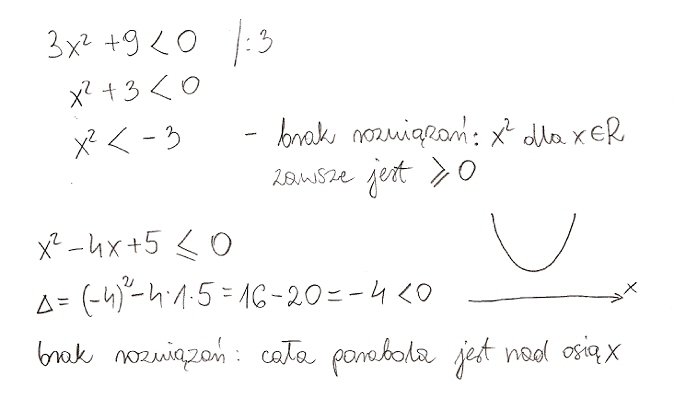 3x² + 9 < 0 /:3
x² + 3 < 0
x² < -3 - brak rozwiązań: x² dla x ∈ R
zawsze jest ⩾ 0
x² - 4x + 5 ⩽ 0
Δ = (-4)² - 4·1·5 = 16 - 20 = -4 < 0
x
brak rozwiązań: cała parabola jest nad osią x